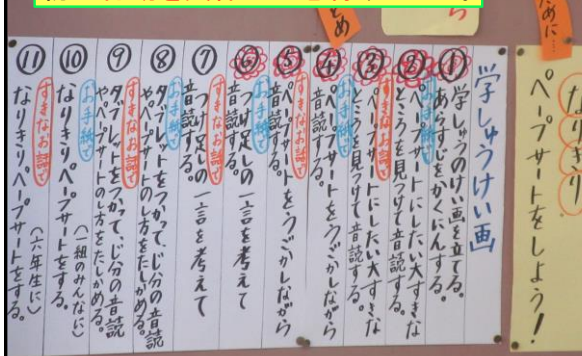 ために…
なりきり
ペープサートをしよう!
学しゅうけい画
① 学しゅうのけい画を立てる。
あらすじをかくにんする。
② お手紙で
ペープサートにしたい大すきな
ところを見つけて音読する。
③ すきなお話で
ペープサートにしたい大すきな
ところを見つけて音読する。
④ お手紙で
ペープサートをうごかしながら
音読する。
⑤ すきなお話で
ペープサートをうごかしながら
音読する。
⑥ お手紙で
つけ足しの一言を考えて
音読する。
⑦ すきなお話で
つけ足しの一言を考えて
音読する。
⑧ お手紙で
タブレットをつかって、じ分の音読
やペープサートのし方をたしかめる。
⑨ すきなお話で
タブレットをつかって、じ分の音読
やペープサートのし方をたしかめる。
⑩ お手紙で
なりきりペープサートをする。
(一組のみんなに)
⑪ すきなお話で
なりきりペープサートをする。
(六年生に)
とめ
ら